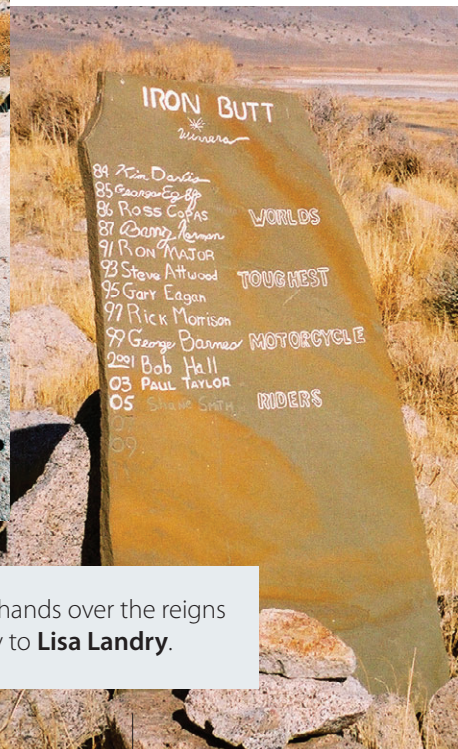 IRON BUTT
Winners
84 Kim Danlis
85 George Egloff
86 ROSS COPAS
87 Barry Norman
91 RON MAJOR
93 Steve Attwood
95 Gary Eagan
97 Rick Morrison
99 George Barnes
2001 Bob Hall
03 PAUL TAYLOR
05 Shane Smith
07
09
WORLDS
TOUGHEST
MOTORCYCLE
RIDERS
hands over the reigns
to Lisa Landry.